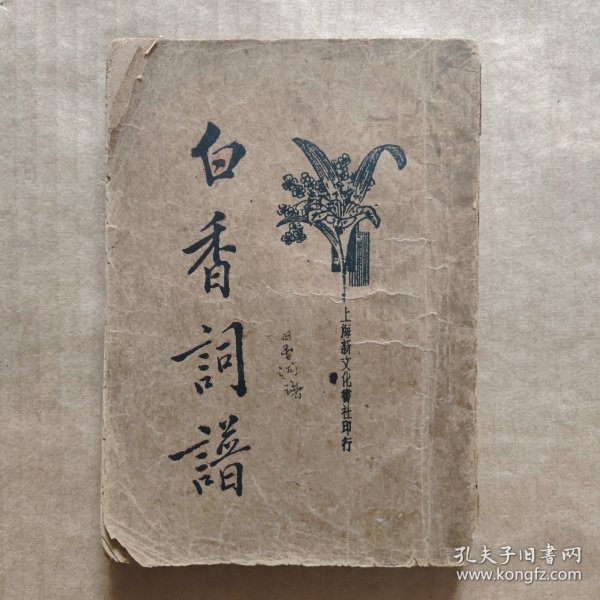 白香詞譜
上海新文化書社印行
白香词谱
孔夫子旧书网
www.kongfz.com